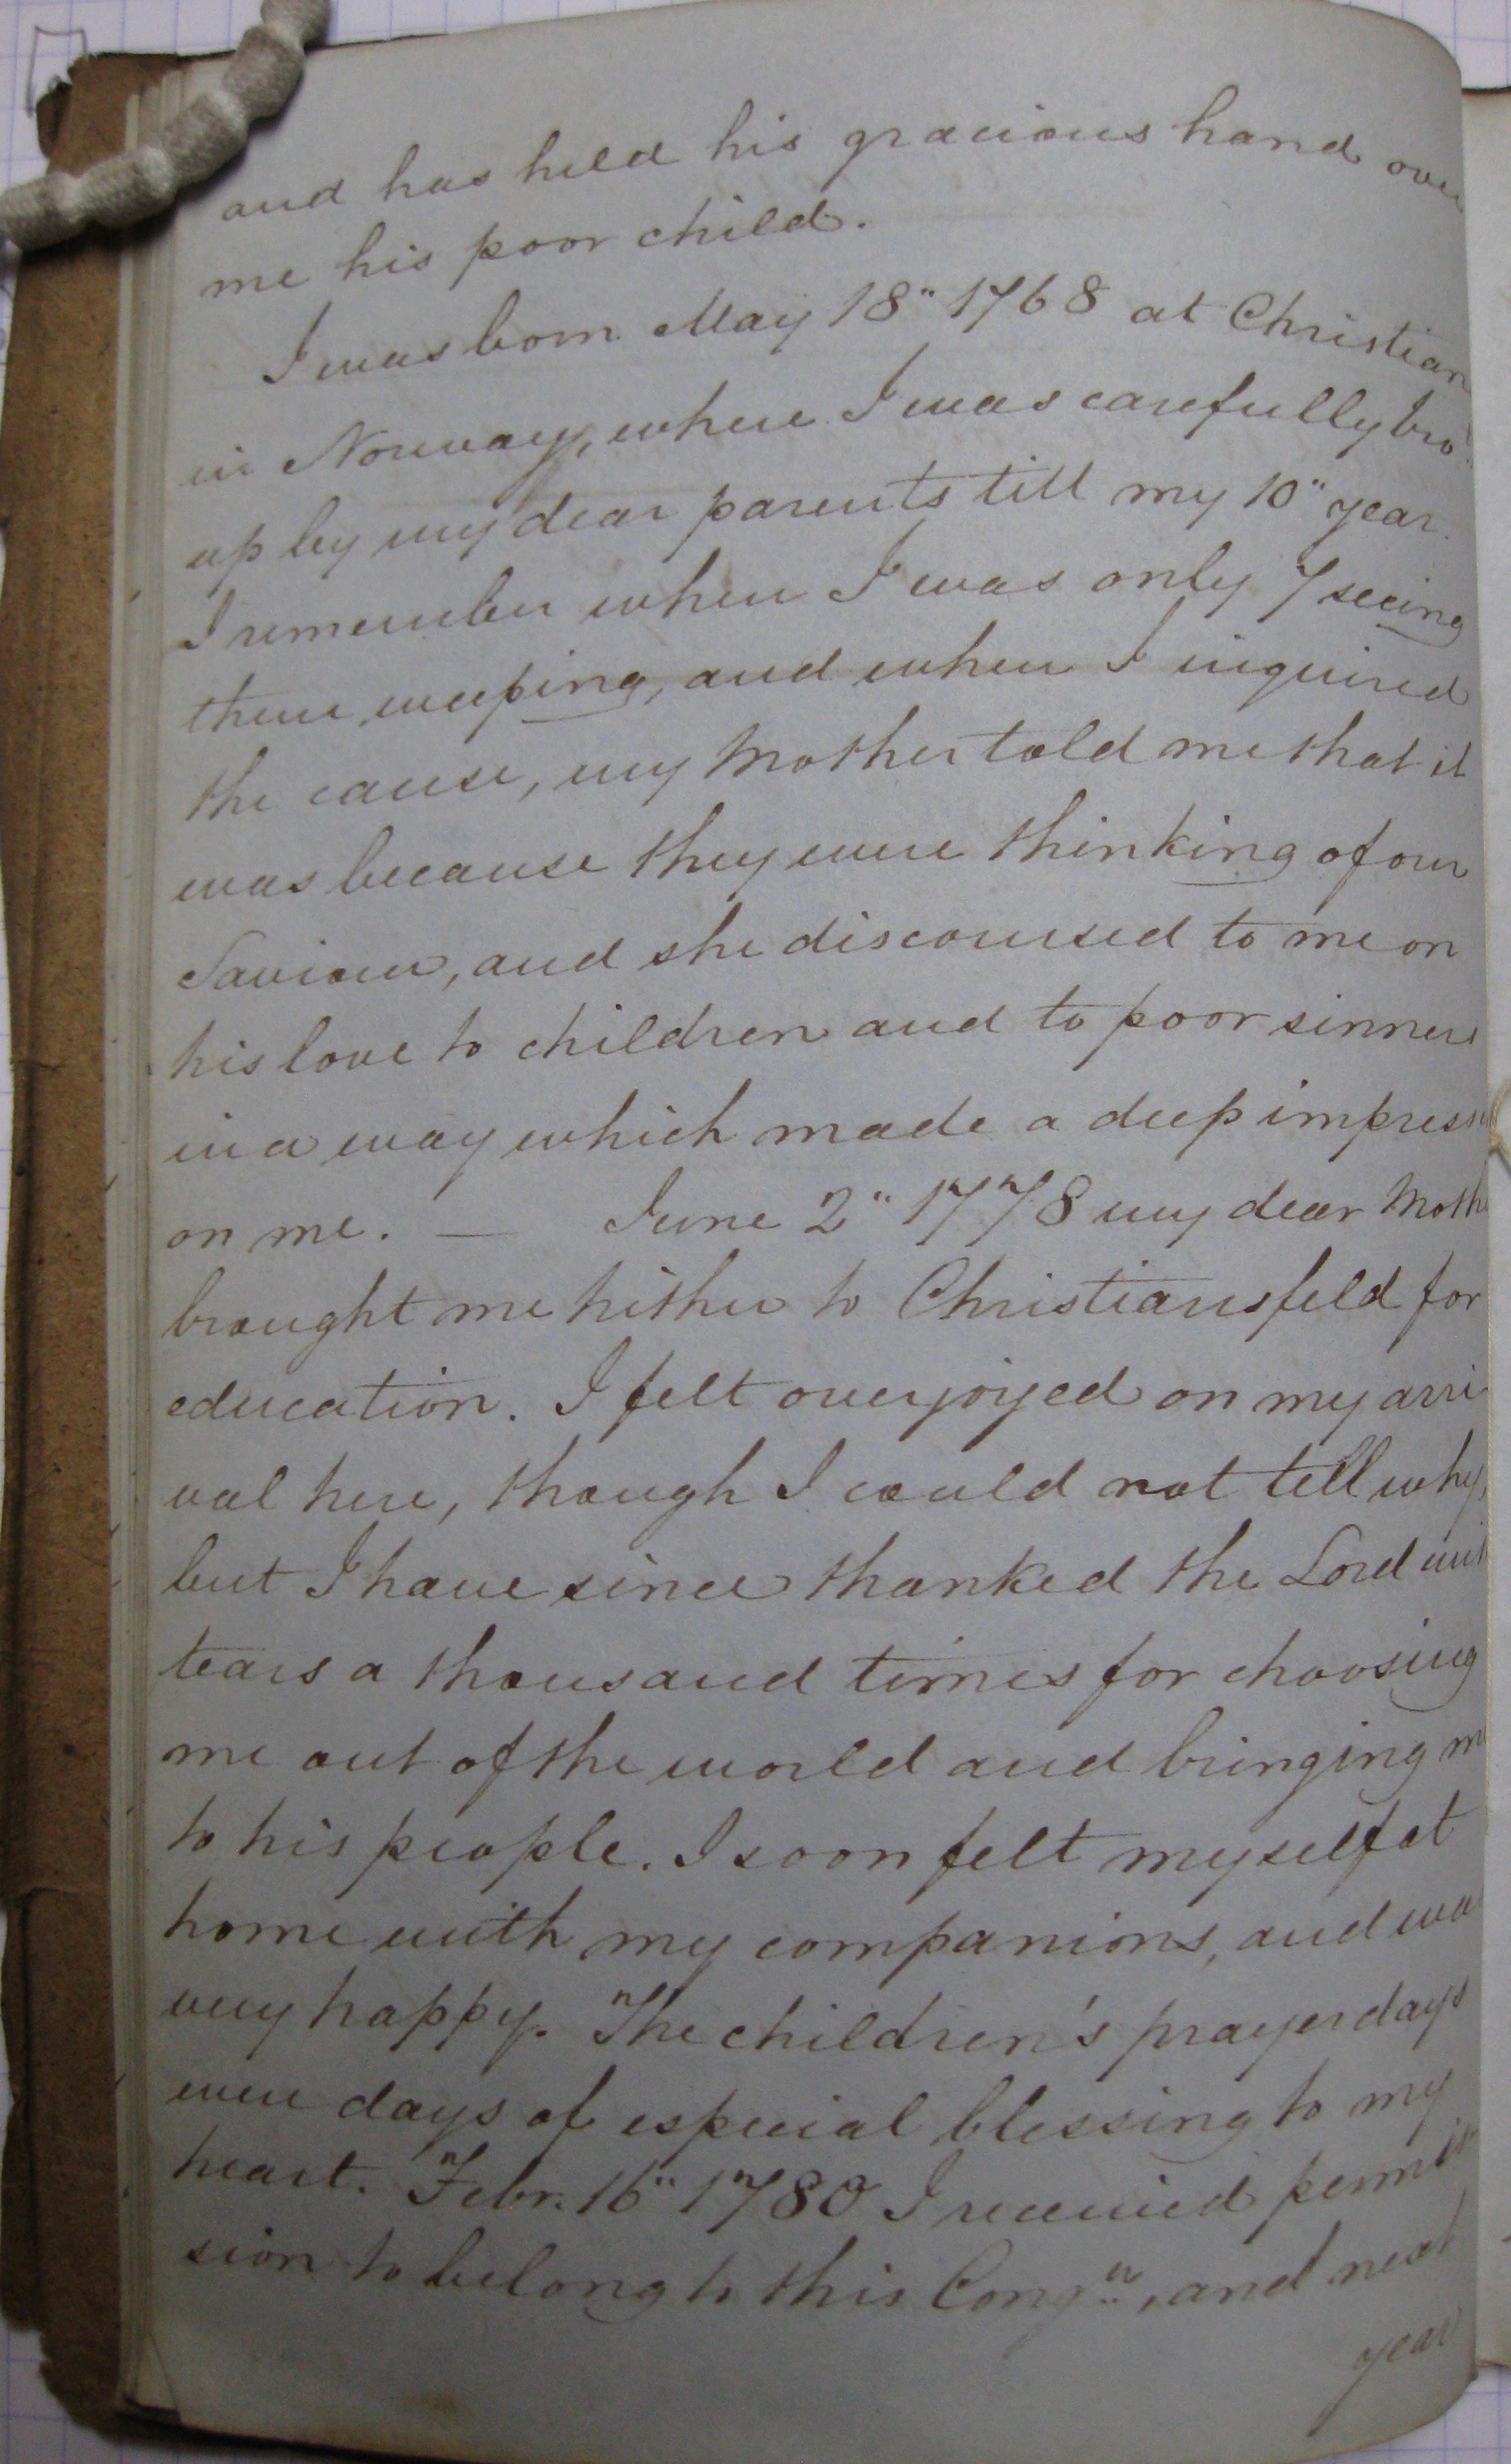 and has held his gracious hand over
me his poor child.
I was born May 18" 1768 at Christian
in Norway, where I was carefully bro't
up by my dear parents till my 10" year.
I remember when I was only 7 seeing
them weeping, and when I inquired
the cause, my Mother told me that it
was because they were thinking of our
Saviour, and she discoursed to me on
his love to children and to poor sinners
in a way which made a deep impress
on me. — June 2" 1778 my dear Moth
brought me hither to Christiansfeld for
education. I felt overjoyed on my arri
val here, though I could not tell why,
but I have since thanked the Lord with
tears a thousand times for choosing
me out of the world and bringing me
to his people. I soon felt myself at
home with my companions, and was
very happy. The children's prayer days
were days of especial blessing to my
heart. Febr. 16" 1780 I received permis
sion to belong to this Congn, and next
year